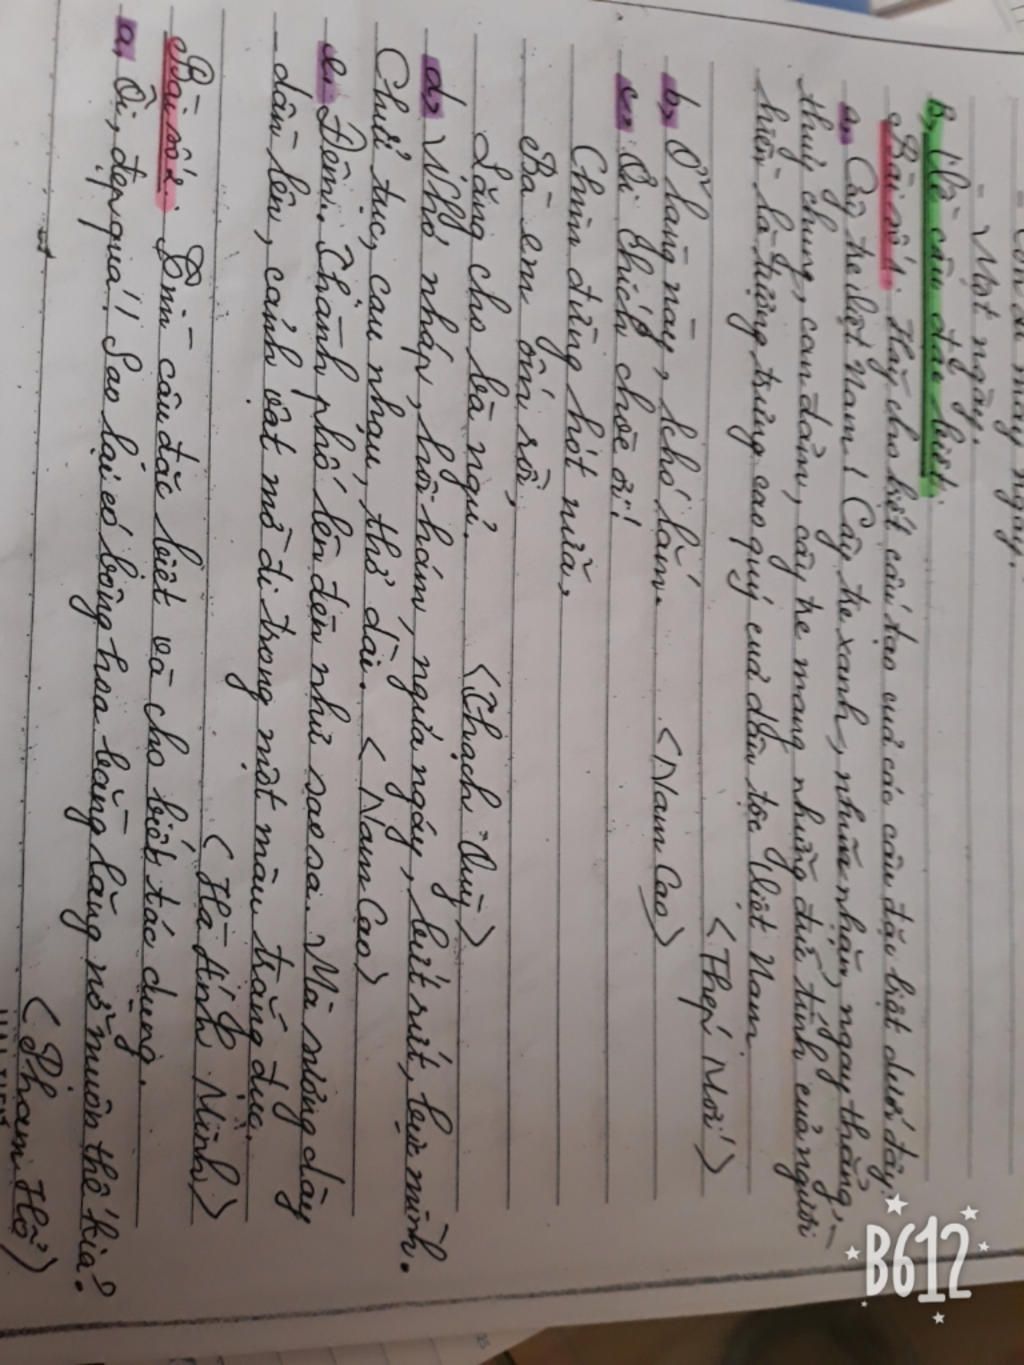 - Một ngày.
B, Về câu đặc biệt.
Bài số 1: Hãy cho biết cấu tạo của các câu đặc biệt dưới đây.
a, Cây tre Việt Nam! Cây tre xanh, nhũn nhặn, ngay thẳng,
thuỷ chung, can đảm, cây tre mang những đức tính của người
hiền là tượng trưng cao quý của dân tộc Việt Nam.
<Thép Mới>
b, Ở làng này, khó lắm. <Nam Cao>
c, Ơi thích choè ơi!
Chim đừng hót nữa,
Bà em ốm rồi,
Lặng cho bà ngủ.
<Thạch Quỳ>
d, Nhớ nháp, hôi hám, ngứa ngáy, bứt rứt, bực mình.
Chửi tục, cau nhau, thở dài. <Nam Cao>
e, Đêm. Thành phố lên đèn như sao sa. Mà sương dày
dần lên, cảnh vật mờ đi trong một màu trắng đục.
<Hà Ánh Minh>
Bài số 2: Tìm câu đặc biệt và cho biết tác dụng.
a, Ôi, đẹp quá!! Sao lại có bông hoa bằng lăng nở muộn thế kia?
<Phạm Hổ>
B612